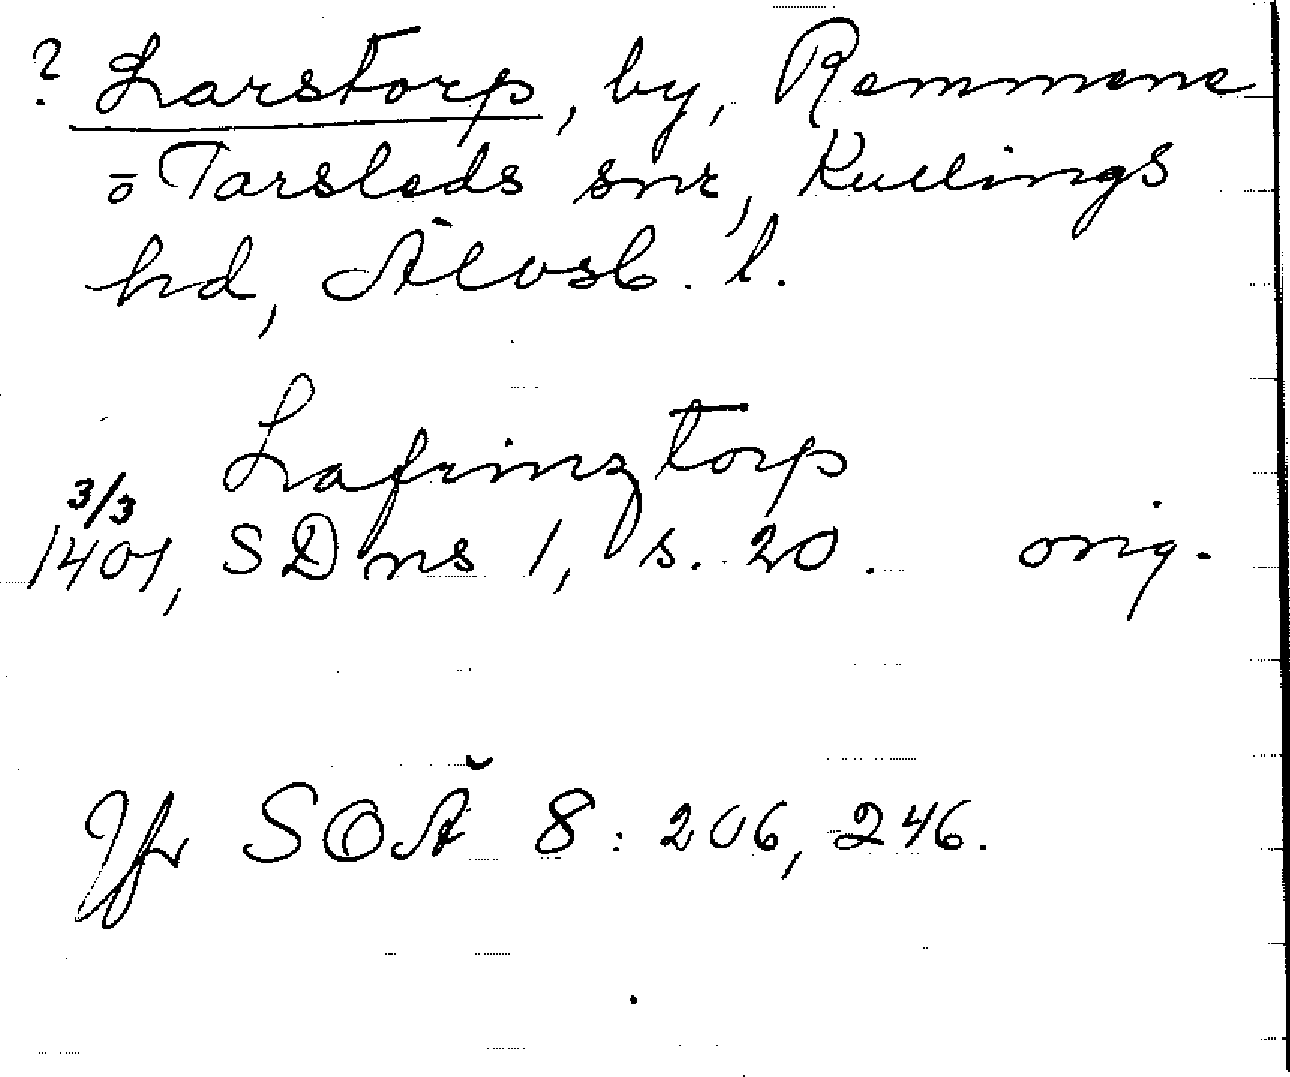 ? Larstorp, by, Remmene
o Tarsleds snr, Kullings
hd, Älvsb. l.
Lafrinztorp
3/3
1401, SD ns 1, s. 20. orig.
Jfr SOÄ 8: 206, 246.